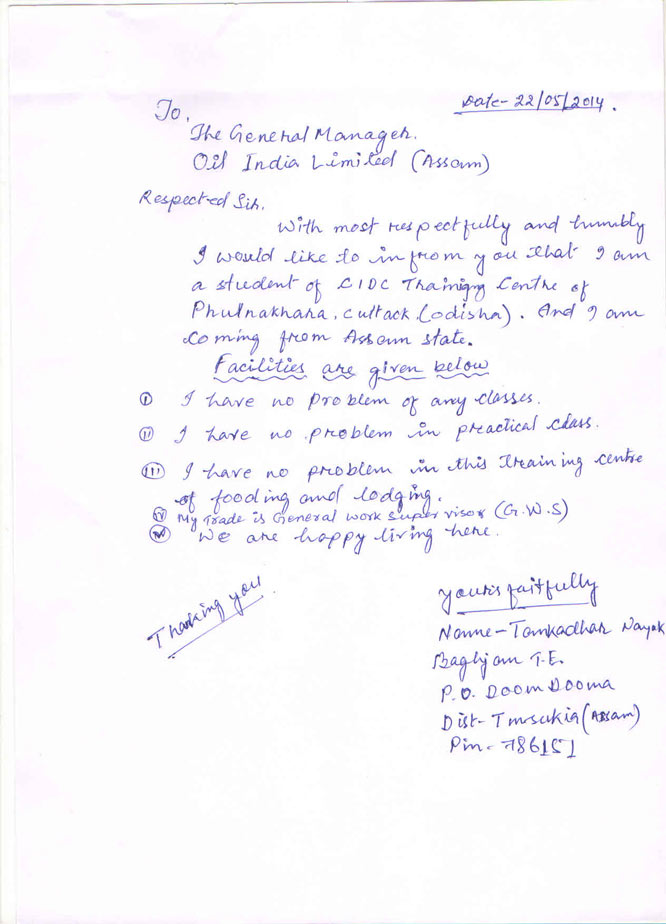 Date- 22/05/2014.
To,
The General Manager.
Oil India Limited (Assam)
Respected Sir.
With most respectfully and humbly
I would like to infrom you that I am
a student of CIDC Training Centre of
Phulnakhara, Cuttack, (odisha). And I am
coming from Assam state.
Facilities are given below
(I) I have no problem of any classes.
(II) I have no problem in practical class.
(III) I have no problem in this training centre
of fooding and lodging.
(IV) My Trade is General work supervisor (G.W.S)
We are happy living here.
Thanking you
yours faitfully
Name- Tankadhar Nayak
Baghjan T.E.
P.O. DOOM DOOMA
Dist- Tinsukia (Assam)
Pin- 786151